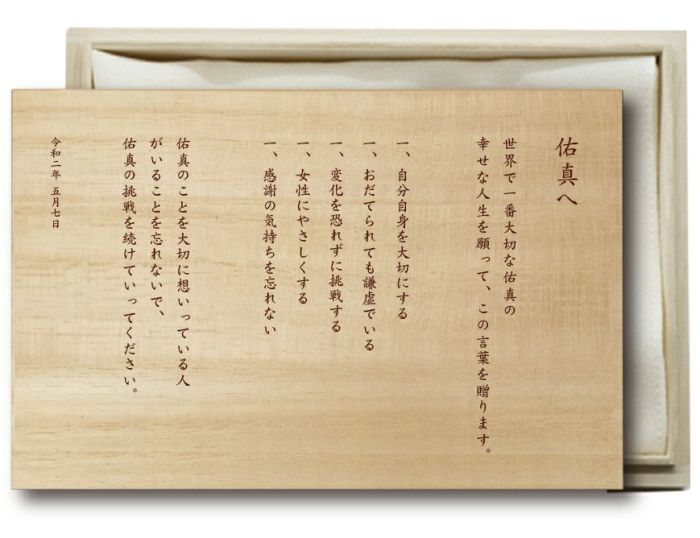 佑真へ
世界で一番大切な佑真の
幸せな人生を願って、この言葉を贈ります。
一、自分自身を大切にする
一、おだてられても謙虚でいる
一、変化を恐れずに挑戦する
一、女性にやさしくする
一、感謝の気持ちを忘れない
佑真のことを大切に想いっている人
がいることを忘れないで、
佑真の挑戦を続けていってください。
令和二年 五月七日